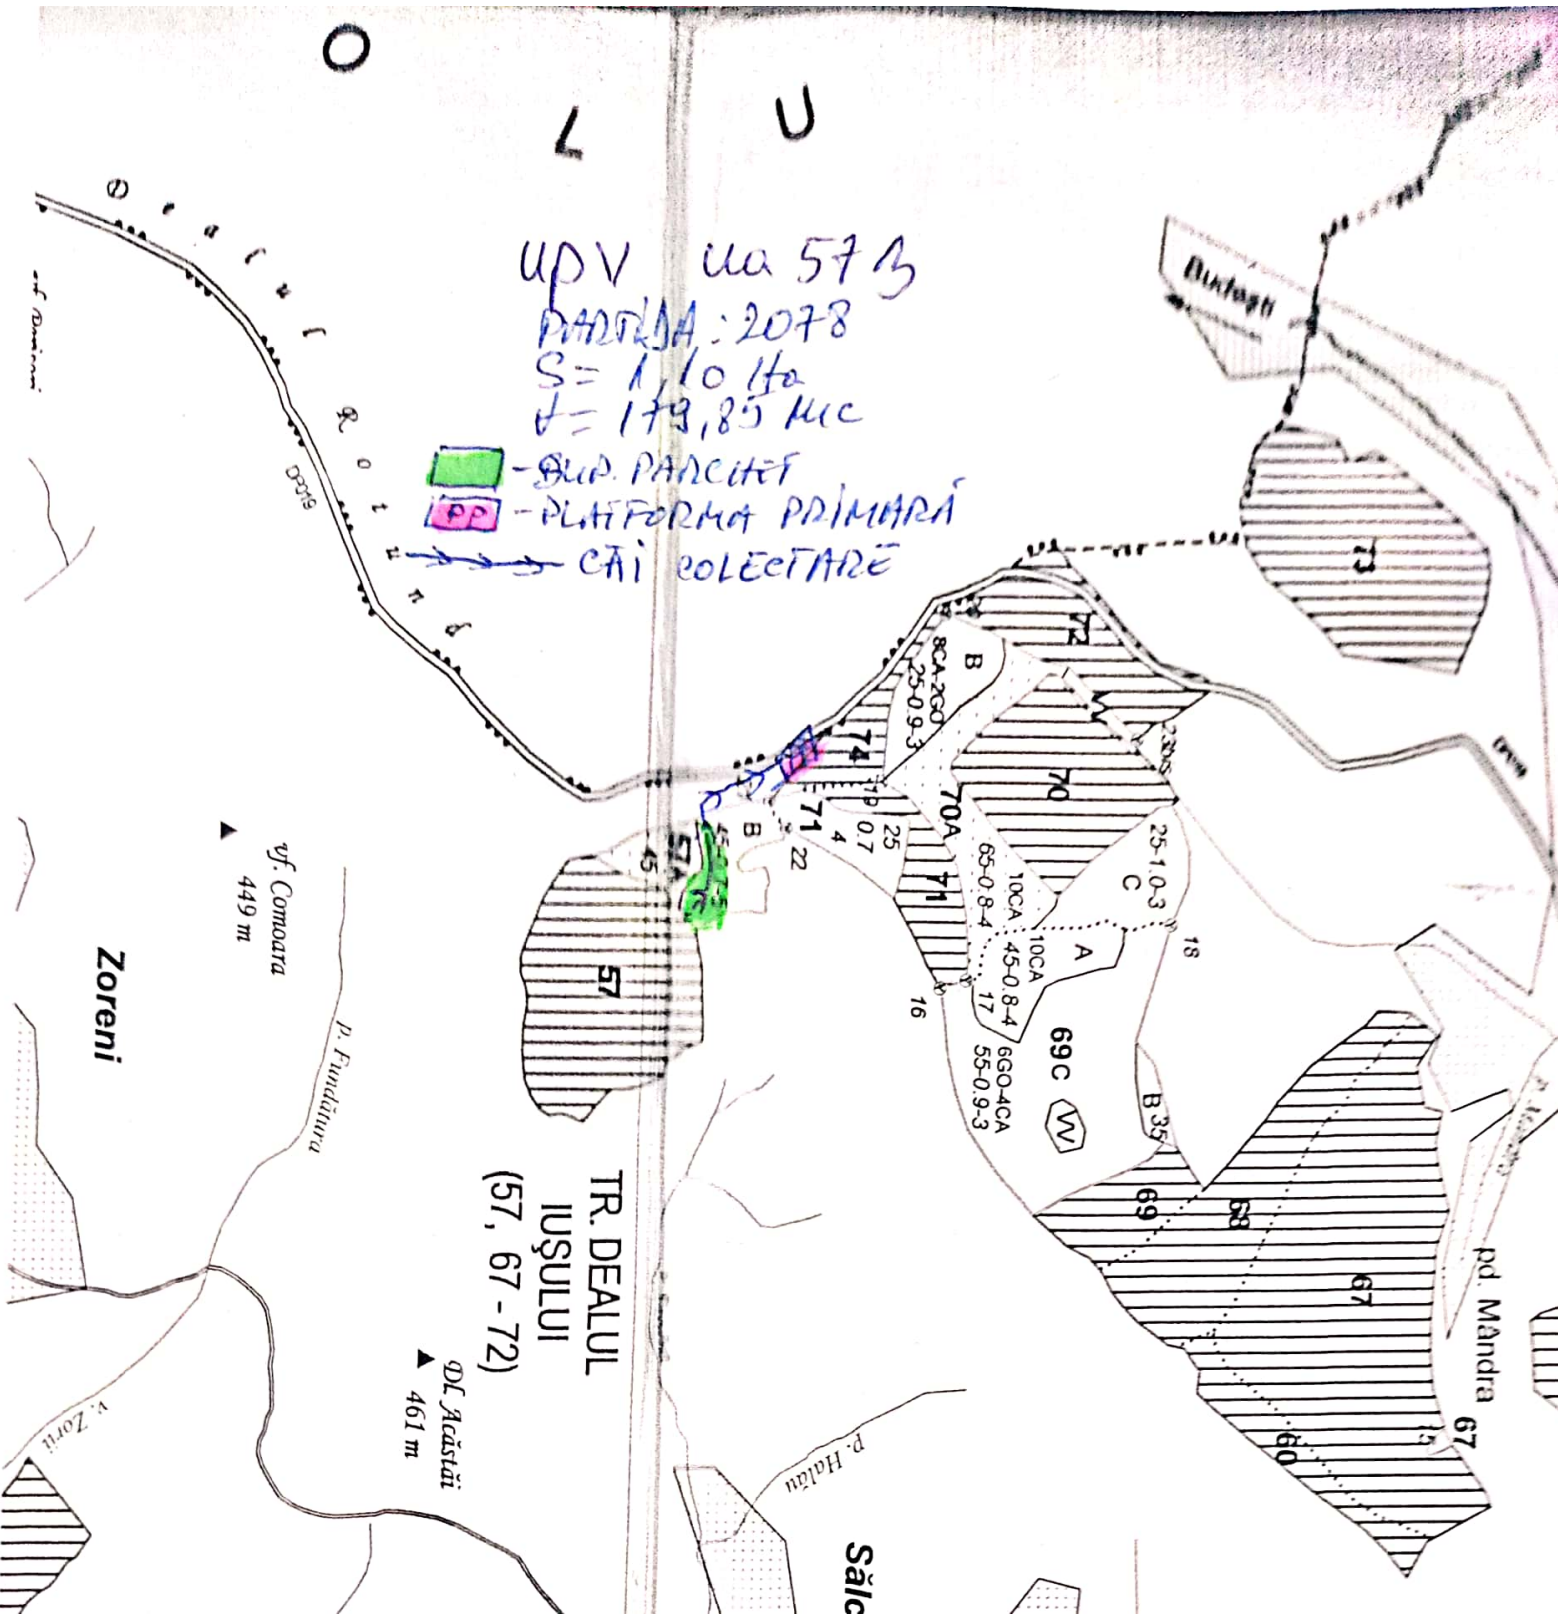 O
L
U
Dealul Rotund
UP V ua 57 B
PARTIDA : 2078
S= 1,10 Ha
V= 179,85 mc
- SUP. PARCHET
PP - PLATFORMA PRIMARĂ
- CĂI COLECTARE
DP019
Budești
73
72
B
8CA-2GO
25-0.9-3
74
70
70A
71
19
25
0.7
4
71
B
22
57A
45
57
10CA
65-0.8-4
25-1.0-3
C
18
A
10CA
45-0.8-4
17
16
69C
6GO-4CA
55-0.9-3
B 35
69
68
67
60
pd. Mândra
67
15
vf. Comoara
449 m
Zoreni
p. Fundătura
TR. DEALUL
IUȘULUI
(57, 67 - 72)
Dl. Acăstăi
461 m
v. Zorii
p. Halău
Sălc